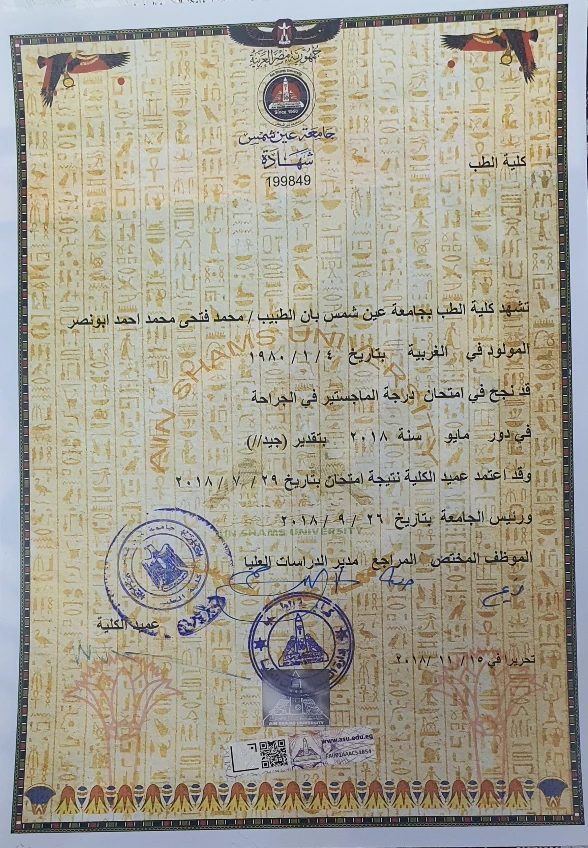 جمهورية مصر العربية
جامعة عين شمس
شهادة
199849
كلية الطب
تشهد كلية الطب بجامعة عين شمس بان الطبيب / محمد فتحى محمد احمد ابونصر
المولود في الغربية بتاريخ ٤ / ١ / ١٩٨٠
قد نجح في امتحان درجة الماجستير في الجراحة
في دور مايو سنة ٢٠١٨ بتقدير (جيد//)
وقد اعتمد عميد الكلية نتيجة امتحان بتاريخ ٢٩ / ٧ / ٢٠١٨
ورئيس الجامعة بتاريخ ٢٦ / ٩ / ٢٠١٨
AIN SHAMS UNIVERSITY
AIN SHAMS UNIVERSITY
الموظف المختص المراجع مدير الدراسات العليا
عميد الكلية
تحريرا في ١٥ / ١١ / ٢٠١٨
AIN SHAMS UNIVERSITY
www.asu.edu.eg